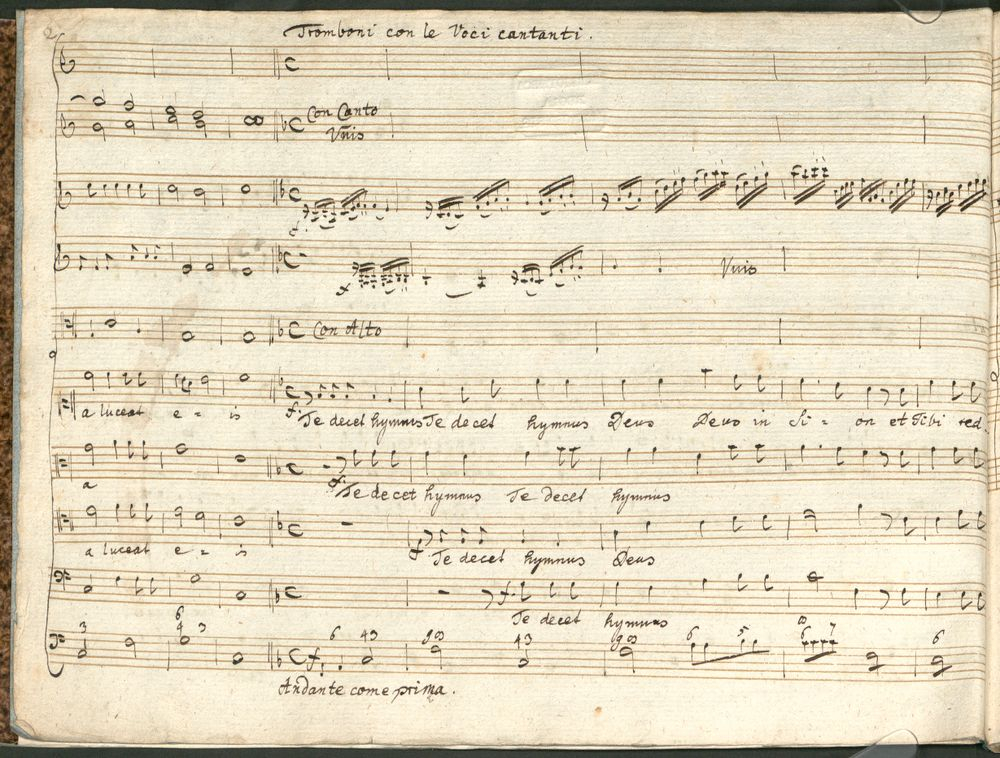 2
Tromboni con le Voci cantanti.
Con Canto
Vnis
f.
f
Vnis
Con Alto
f.
a luceat e = is Te decet hymnus Te decet hymnus Deus Deus in Si = on et Tibi red
f.
a Te decet hymnus Te decet hymnus
f.
a luceat e = is Te decet hymnus Deus
f.
Te decet hymnus
3 6 4 3 6 43 43 6 5 6 7 6
f.
Andante come prima.